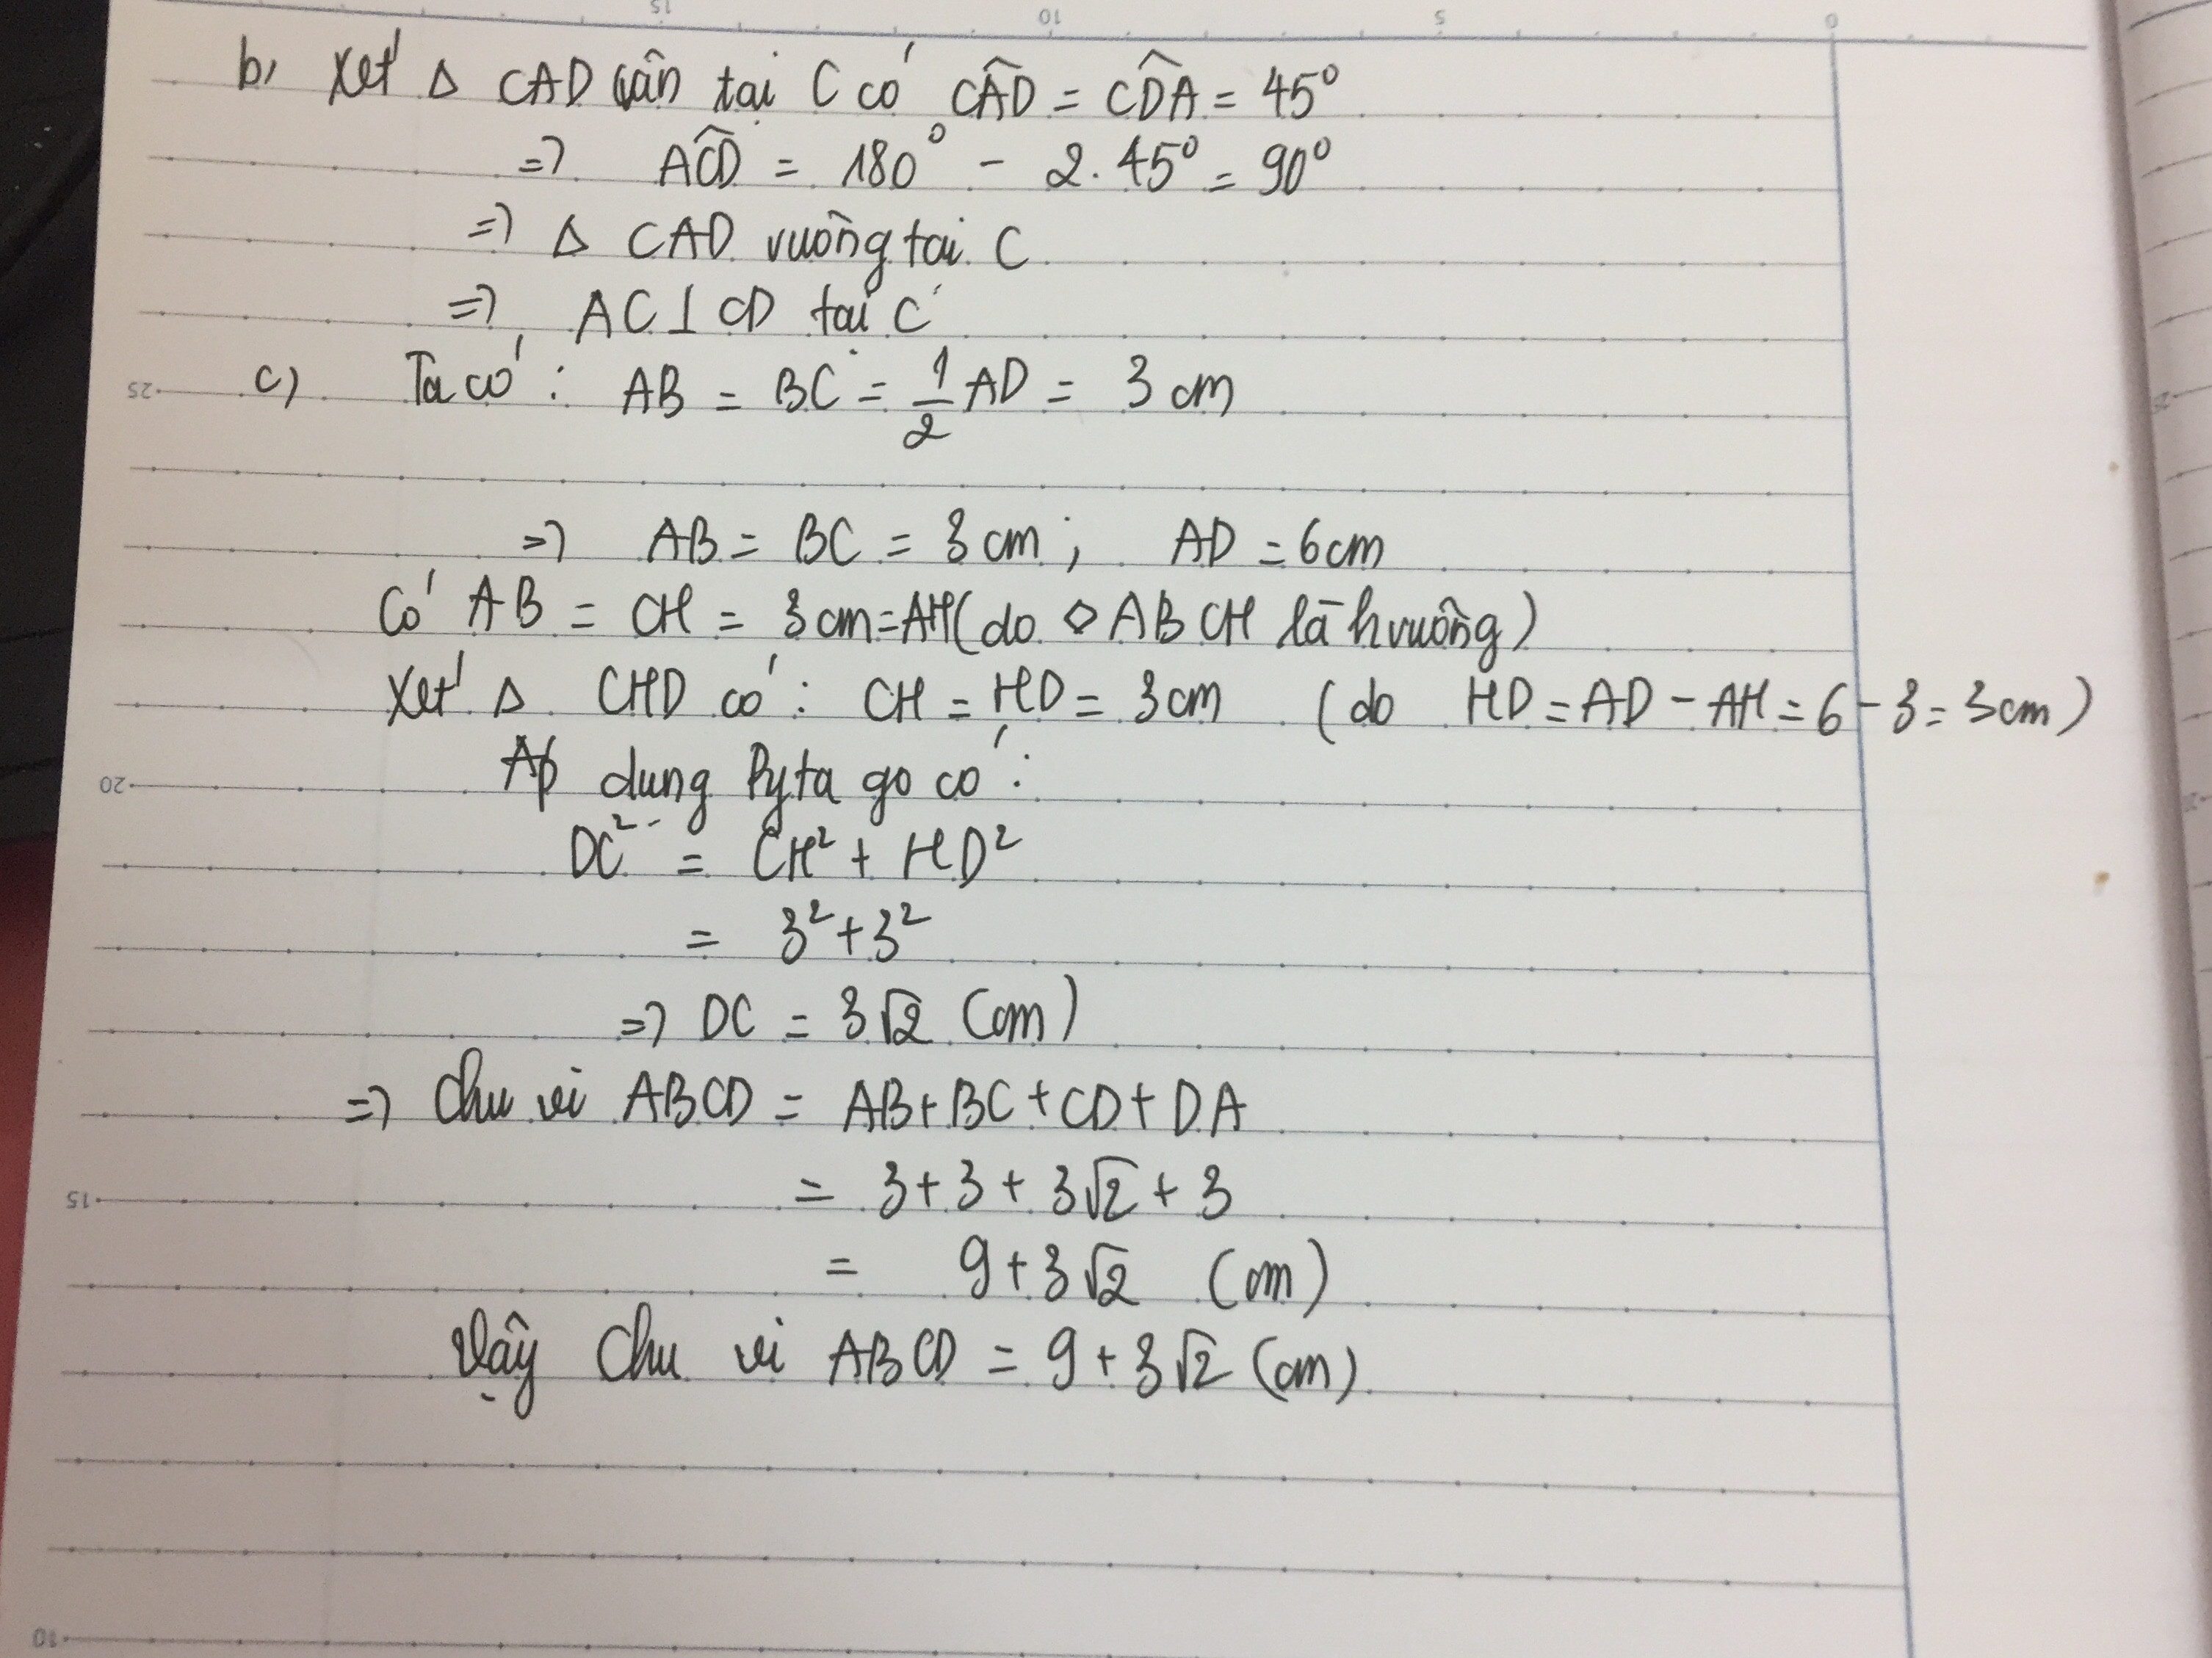 15 10 5 0
b, Xét Δ CAD cân tại C có CÂD = CD̂A = 45⁰
=> AĈD = 180⁰ - 2.45⁰ = 90⁰
=> Δ CAD vuông tại C
=> AC ⊥ CD tại C
25
c) Ta có : AB = BC = 1/2 AD = 3 cm
=> AB = BC = 3 cm ; AD = 6cm
Có AB = CH = 3 cm = AH (do ◇ ABCH là hvuông)
Xét Δ CHD có : CH = HD = 3 cm (do HD = AD - AH = 6 - 3 = 3cm)
20
Áp dụng Pytago có :
DC² = CH² + HD²
= 3² + 3²
=> DC = 3√2 (cm)
=> Chu vi ABCD = AB + BC + CD + DA
15
= 3 + 3 + 3√2 + 3
= 9 + 3√2 (cm)
Vậy Chu vi ABCD = 9 + 3√2 (cm)
10